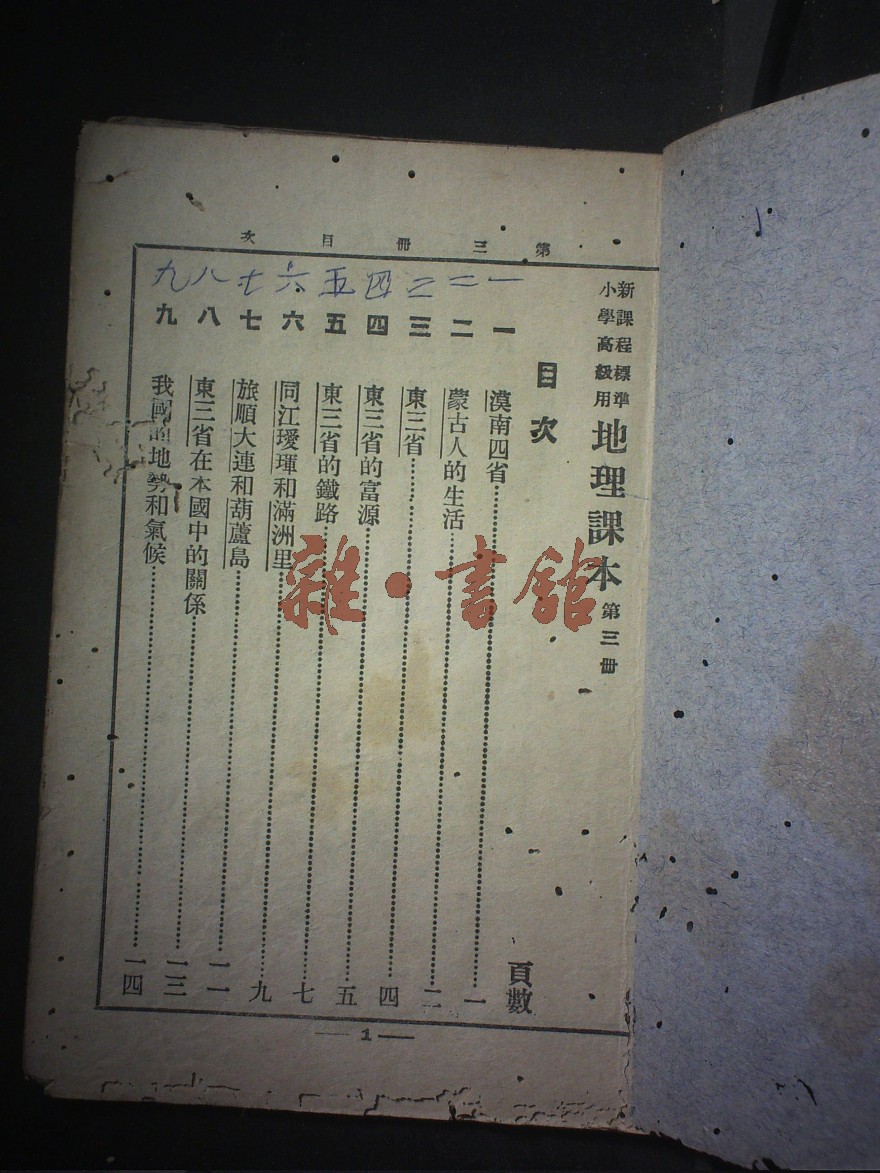 第三冊目次
新課程標準
小學高級用
地理課本 第三冊
目次
頁數
一 漠南四省 一
二 蒙古人的生活 二
三 東三省 四
四 東三省的富源 五
五 東三省的鐵路 七
六 同江璦琿和滿洲里 九
七 旅順大連和葫蘆島 一一
八 東三省在本國中的關係 一三
九 我國的地勢和氣候 一四
一 二 三 四 五 六 七 八 九
1
雜·書館